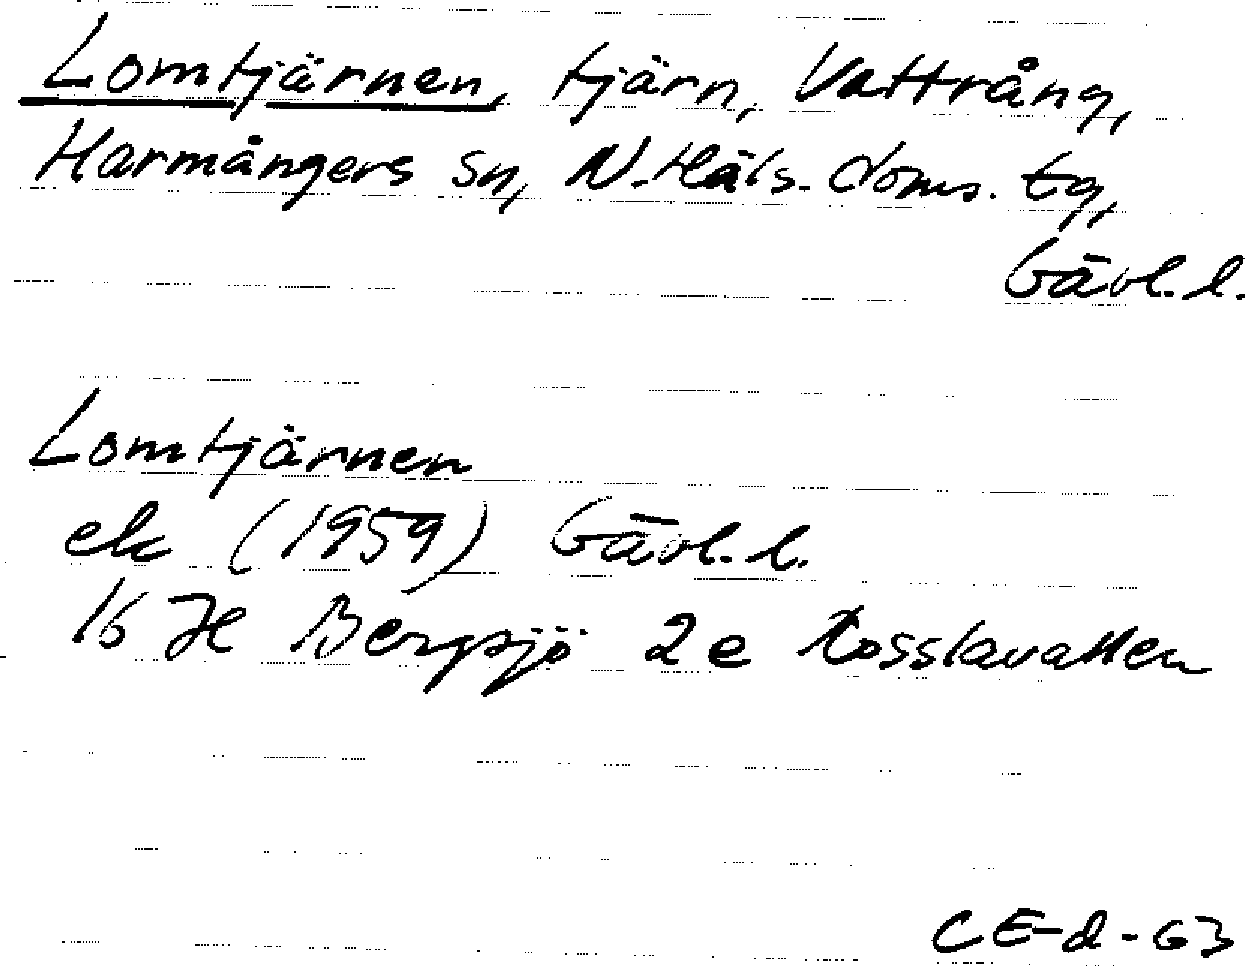 Lomtjärnen, tjärn, Vattrång,
Harmångers sn, N. Häls. doms. tg,
Gävl. l.
Lomtjärnen
ek (1959) Gävl. l.
16 H Bergsjö 2 e Kosslavallen
CE-d-63